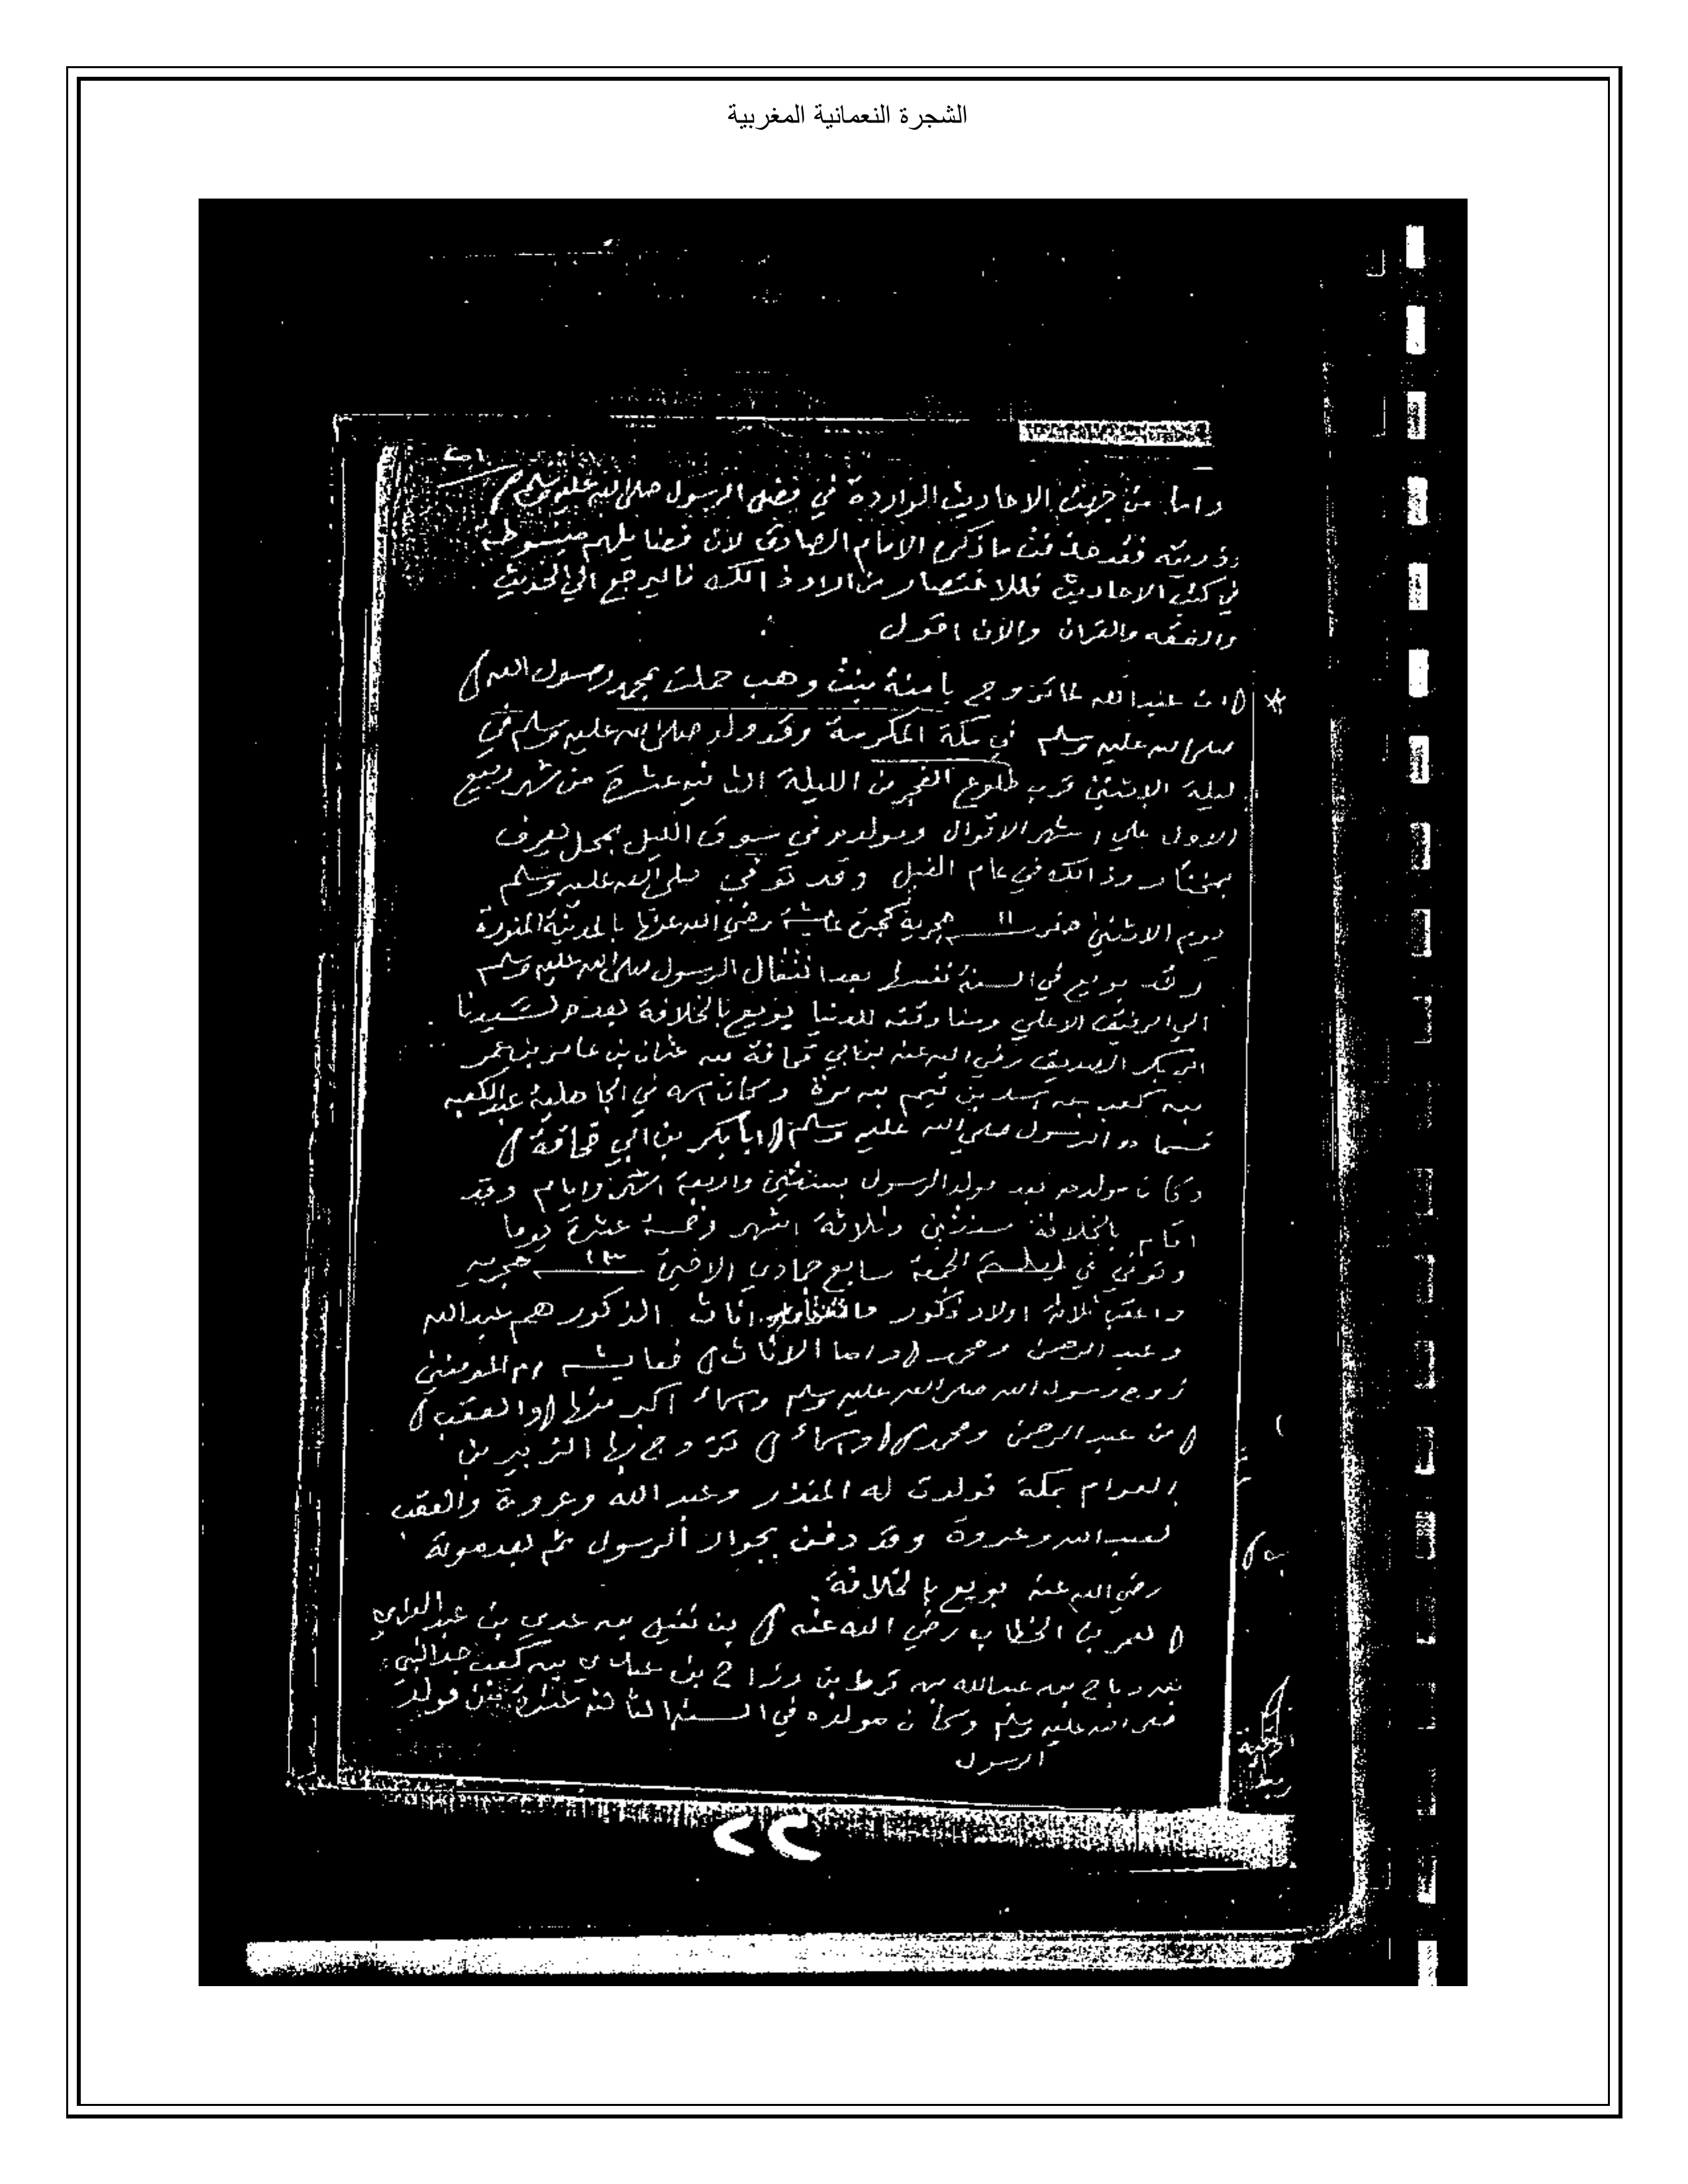 الشجرة النعمانية المغربية
واما من جهة الاحاديث الواردة في فضل الرسول صلى الله عليه وسلم
وذريته فقد حذفت ما ذكره الامام الصادق لان فضايلهم مبسوطة
في كتب الاحاديث فللاختصار من الاد ذالك فاليرجع الي الحديث
والفقه والقران والان اقول
ان عبدالله لما تزوج بامنة بنت وهب حملت بمحمد رسول الله
صلى الله عليه وسلم في مكة المكرمة وقد ولد صلى الله عليه وسلم في
ليلة الاثنين قرب طلوع الفجر من الليلة الثانيه عشرة من شهر ربيع
الاول علي اشهر الاقوال ومولده في سوق الليل بمحل يعرف
وذالك في عام الفيل وقد توفي صلى الله عليه وسلم
يوم الاثنين صفر ١١ هجرية بحجرة عايشة رضي الله عنها بالمدينة المنورة
بويع في السنة نفسها بعد انتقال الرسول صلى الله عليه وسلم
الي الرفيق الاعلي ومفارقته للدنيا بويع بالخلافة بعده لسيدنا
ابي بكر الصديق رضي الله عنه بن ابي قحافة بن عثمان بن عامر بن عمر
بن كعب بن سعد بن تيم بن مرة وكان اسمه في الجاهلية عبد الكعبه
فسماه الرسول صلى الله عليه وسلم ابا بكر بن ابي قحافة
وكان مولده بعد مولد الرسول بسنتين واربعة اشهر وايام وقد
اقام بالخلافة سنتين وثلاثة اشهر وخمسة عشرة يوما
وتوفي في ليلة الجمعة سابع جمادي الاخرة ١٣ هجريه
واعقب ثلاثة اولاد ذكور اناث الذكور هم عبدالله
وعبد الرحمن ومحمد واما الاناث فعايشه ام المومنين
زوج رسول الله صلى الله عليه وسلم واسماء اكبر منها والعقب
من عبد الرحمن ومحمد واسماء تزوج بها الزبير بن
العوام بمكة فولدت له المنذر وعبد الله وعروة والعقب
لعبد الله وعروة وقد دفن بجوار الرسول ثم بعد موته
رضي الله عنه بويع بالخلافة
لعمر بن الخطاب رضي الله عنه بن نفيل بن عدي بن عبد
بن رباح بن عبدالله بن قرط بن رزاح بن عدي بن كعب جد النبي
صلى الله عليه وسلم وكان مولده في السنة الثالثة عشرة من مولد
الرسول
٢٢